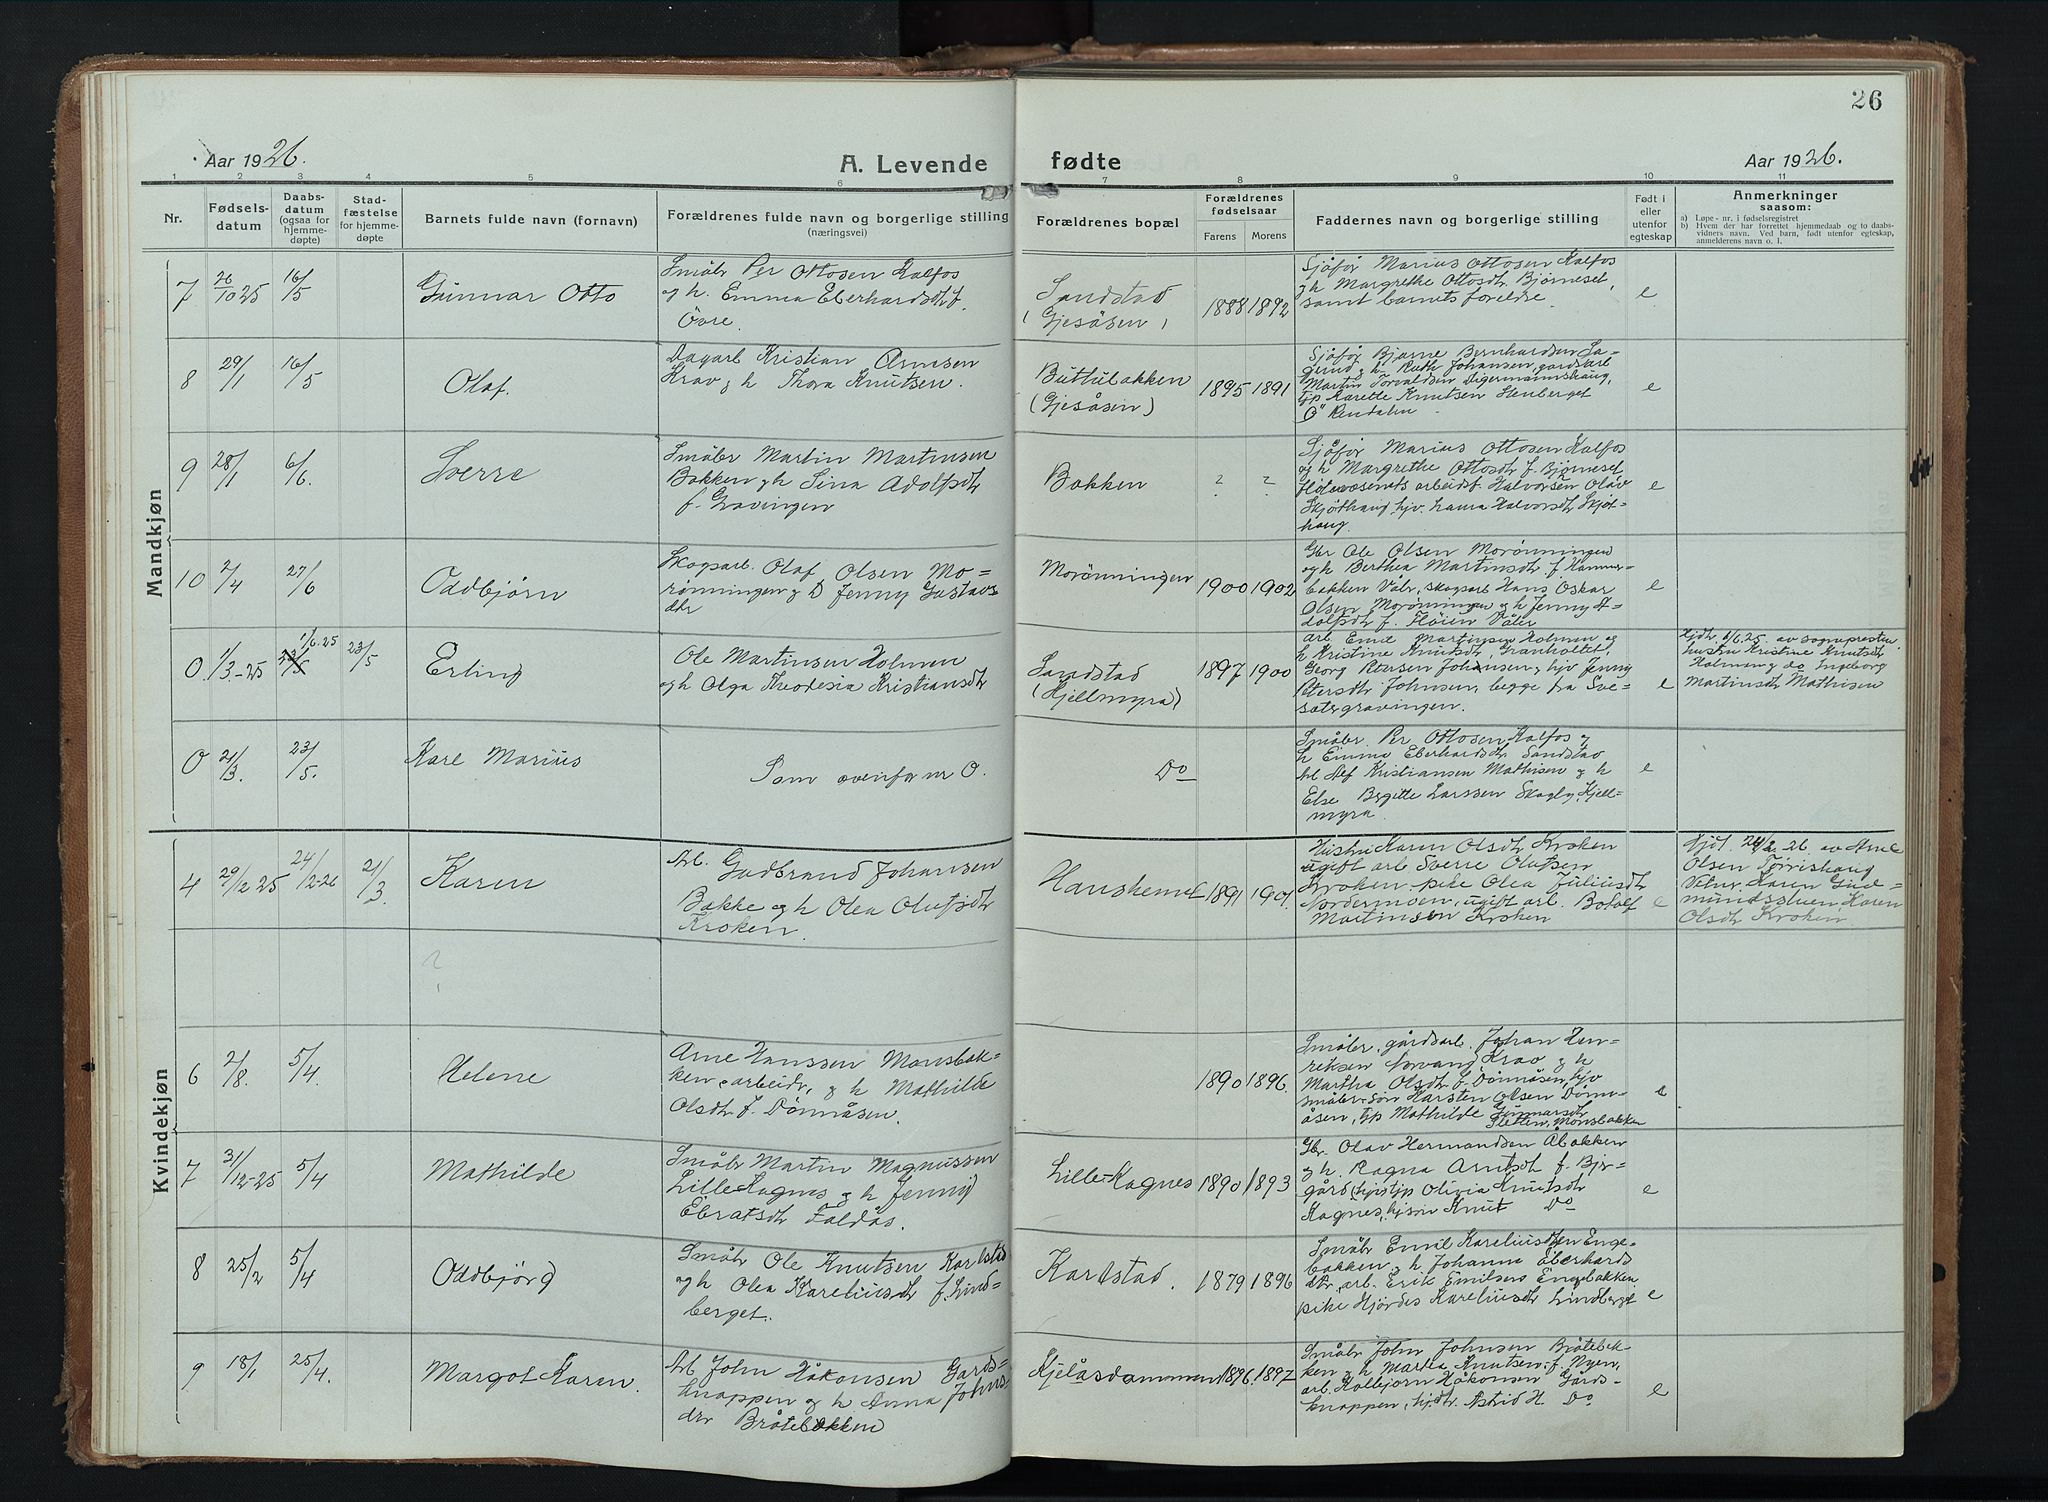 26
Aar 1926.
A. Levende
fødte
Aar 1926.
1 2 3 4 5 6 7 8 9 10 11
Nr.
Fødsels-
datum
Daabs-
datum
(ogsaa for
hjemme-
døpte)
Stad-
fæstelse
for hjemme-
døpte
Barnets fulde navn (fornavn)
Forældrenes fulde navn og borgerlige stilling
(næringsvei)
Forældrenes bopæl
Forældrenes
fødselsaar
Farens Morens
Faddernes navn og borgerlige stilling
Født i
eller
utenfor
egteskap
Anmerkninger
saasom:
a) Løpe-nr. i fødselsregistret
b) Hvem der har forrettet hjemmedaab og to daabs-
vidners navn. Ved barn, født utenfor egteskap,
anmelderens navn o. l.
Mandkjøn
7 26/10 25 16/5
Gunnar Otto
Småbr Per Ottosen Kalfos
og h. Emma Eberhardsdtr f.
Øvre.
Sandstad
(Gjesåsen)
1888 1892
Sjåfør Marius Ottosen Kalfos
og h Margrethe Ottosdtr Bjørneset,
samt barnets foreldre.
e
8 29/1 16/5
Olaf.
Dagarb Kristian Arnesen
Krav og h Thora Knutsen.
Buttubakken
(Gjesåsen)
1895 1891
Sjåfør Bjarne Bernhardsen
og h. Ruth Johansen, gårdsarb
Martin Torvaldsen Digermannshaug,
tjp Karette Knutsen Stenberget
Ø Rendalen
e
9 28/1 6/6.
Sverre
Småbr Martin Martinsen
Bakken og h Lina Adolfsdtr
f. Gravingen
Bakken
? ?
Sjåfør Marius Ottosen Kalfos
og h Margrethe Ottosdtr f. Bjørneset
arbeidsf. Halvorsen Olav
Skjøthaug, hjv. Laura Halvorsdtr Skjøt-
haug.
e
10 2/4 27/6
Oddbjørn
Skogsarb. Olaf Olsen Mo-
rønningen og D Jenny Gustavs
dtr
Morønningen
1900 1902
Gbr Ole Olsen Morønningen
og h Berthea Martinsdtr f. Hammer-
bakken Våler, skogsarb Hans Oskar
Olsen Morønningen og h Jenny A-
dolfsdtr f. Høien Våler
e
0 1/3-25 1/6.25 23/5 23/5
Erling
Ole Martinsen Holmen
og h Olga Theodesia Kristiansdtr
Sandstad
(Kjellmyra)
1897 1900
arb. Emil Martinsen Holmen og
h Kristine Knutsdtr, Granholtet,
Georg Petersen Johansen og hjv Jenny
Petersdtr Johnsen, begge fra Sve-
sætergravingen.
e
Hjdt. 1/6.25. av sognepresten
hustru Kristine Knutsdtr
Holmen og do Ingeborg
Martinsdtr Mathisen
0 21/3. 23/5.
Kåre Marius
Som ovenfor nr 0.
Do
Småbr Per Ottosen Kalfos og
h Emma Eberhardsdtr Sandstad
Arb Alf Kristiansen Mathisen og h
Else Birgitte Larssen Skogly, Kjell-
myra
e
Kvindekjøn
4 29/12 25 24/12-26 21/3.
Karen
Arb. Gudbrand Johansen
Bakke og h Olea Olufsdtr
Kroken.
Hanshemet
1891 1901.
Hustru Karen Olsdtr Kroken
ugift arb Sverre Olafsen
Kroken, pike Olea Juliusdtr
Nordermoen, ugift arb. Botolf
Martinsen Kroken
e
Hjdt. 24/2. 26 av Arne
Olsen Tørrishaug
Vitner Karen Gud-
mundsstuen Karen
Olsdtr Kroken
?
6 2/8. 5/4.
Helene
Arne Hanssen Monsbak-
ken, arbeidr, og h Mathilde
Olsdtr f. Dønnåsen.
1890 1896.
Småbr, gårdsarb. Johan Hen-
riksen Norvang, Krav og h
Martha Olsdtr f. Dønnåsen, hjv
småbr-søn Karsten Olsen Dønn-
åsen, tjp Mathilde Gunnarsdtr
Sletten, Monsbakken
e
7 31/12-25 5/4
Mathilde
Småbr Martin Magnussen
Lille-Kagnes og h Jenny
Ebratsdtr Faldås.
Lille-Kagnes
1890 1893
Gbr. Olav Hermandsen Åbakken
og h. Ragna Arntsdtr f. Bjør-
gård, hjv tjp Olivia Knutsdt
Kagnes, hjsøn Knut Do
e
8 25/2 5/4
Oddbjørg
Småbr Ole Knutsen Karlstad
og h Olea Kareliusdtr f. Lind-
berget.
Karlstad.
1879 1896
Småbr Emil Kareliusen Enge-
bakken og h Johanna Eberhards
dtr. arb. Erik Emilsen Engebakken,
pike Hjørdis Kareliusdtr Lindberget
e
9 18/1 25/4.
Margot Karen.
Arb John Håkonsen Gards-
knappen og h Anna Johns
dtr Bråtebakken
Kjelåsdammen
1896 1897
Småbr John Johnsen Bråtebak-
ken og h Martea Knutsen f. Nyen,
arb Kolbjørn Håkonsen Gårds-
knappen, hjdtr. Astrid H. Do
e